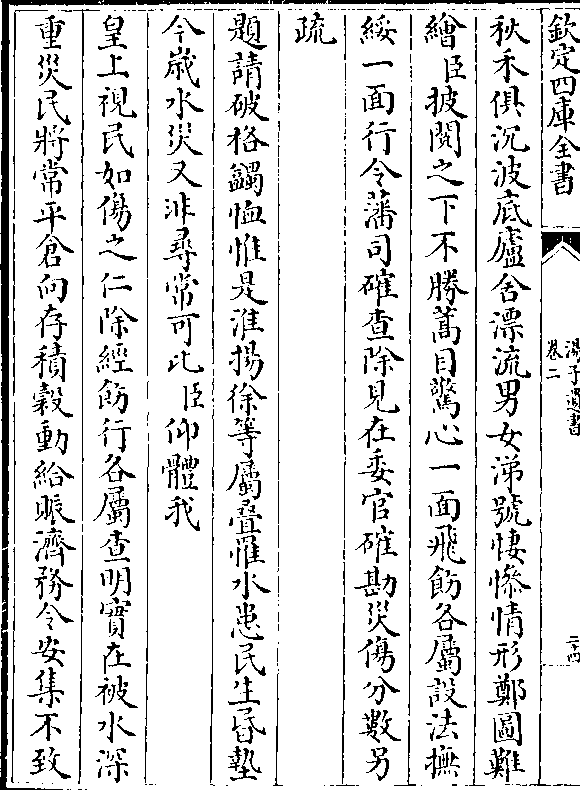 欽定四庫全書
湯子遺書
卷二
二十四
秋禾俱沉波底廬舍漂流男女涕號悽慘情形鄭圖難
繪臣披閱之下不勝蒿目驚心一面飛飭各屬設法撫
綏一面行令藩司確查除見在委官確勘災傷分數另
疏
題請破格蠲恤惟是淮揚徐等屬疊罹水患民生昏墊
今歲水災又非尋常可比臣仰體我
皇上視民如傷之仁除經飭行各屬查明實在被水深
重災民將常平倉向存積穀動給賑濟務令安集不致